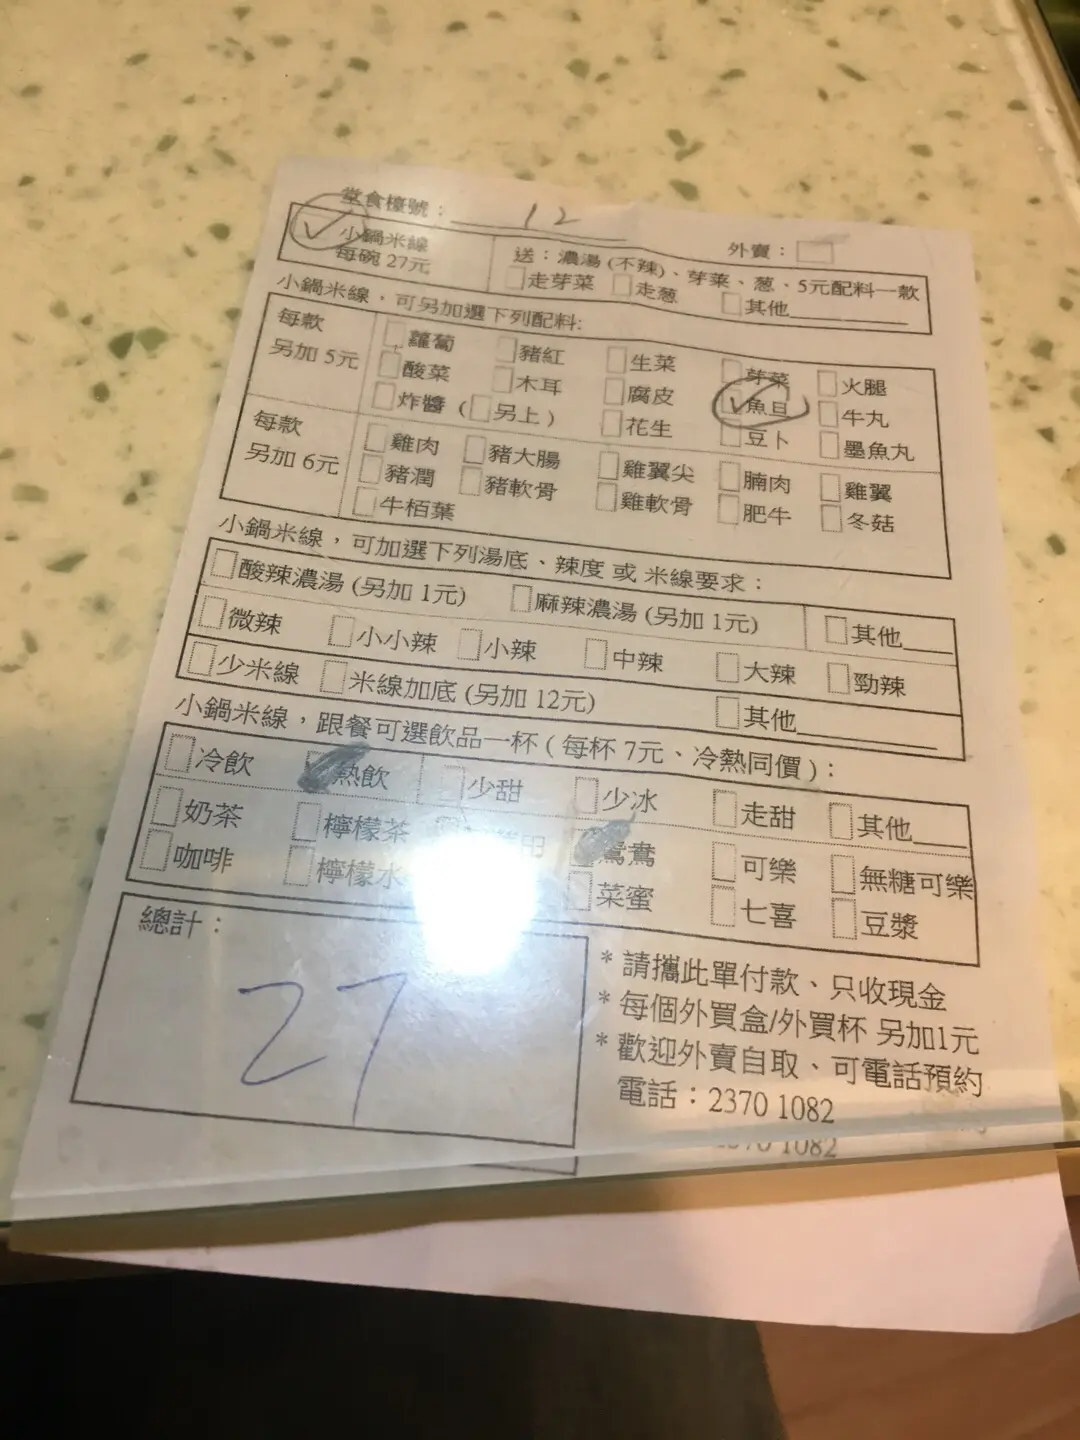 堂食檯號： 12
外賣：
小鍋米線
每碗 27元
送：濃湯 (不辣)、芽菜、葱、5元配料一款
走芽菜 走葱 其他
小鍋米線，可另加選下列配料:
每款
另加 5元
蘿蔔 豬紅 生菜 芽菜 火腿
酸菜 木耳 腐皮 魚旦 牛丸
炸醬 (另上) 花生 豆卜 墨魚丸
每款
另加 6元
雞肉 豬大腸 雞翼尖 腩肉 雞翼
豬潤 豬軟骨 雞軟骨 肥牛 冬菇
牛栢葉
小鍋米線，可加選下列湯底、辣度 或 米線要求：
酸辣濃湯 (另加 1元) 麻辣濃湯 (另加 1元) 其他
微辣 小小辣 小辣 中辣 大辣 勁辣
少米線 米線加底 (另加 12元) 其他
小鍋米線，跟餐可選飲品一杯 ( 每杯 7元、冷熱同價 )：
冷飲 熱飲 少甜 少冰 走甜 其他
奶茶 檸檬茶 鴛鴦 可樂 無糖可樂
咖啡 檸檬水 菜蜜 七喜 豆漿
總計：
27
* 請攜此單付款、只收現金
* 每個外買盒/外買杯 另加1元
* 歡迎外賣自取、可電話預約
電話：2370 1082
2370 1082